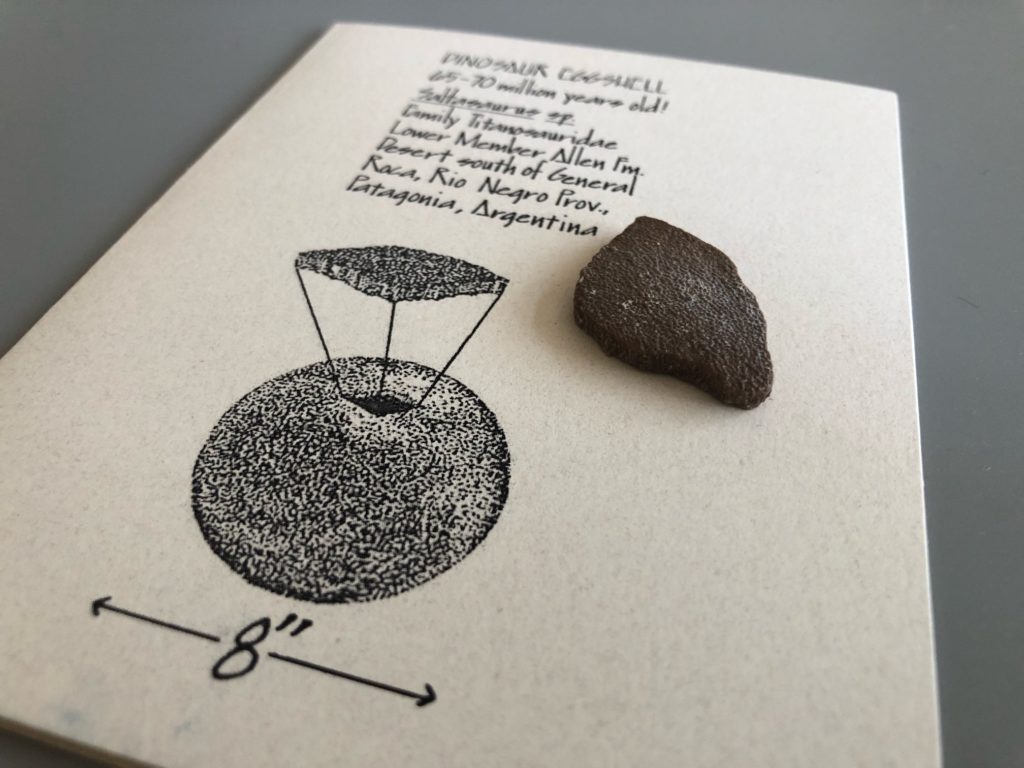 DINOSAUR EGGSHELL
65-70 million years old!
Saltasaurus sp.
Family Titanosauridae
Lower Member Allen Fm.
Desert south of General
Roca, Rio Negro Prov.,
Patagonia, Argentina
8"